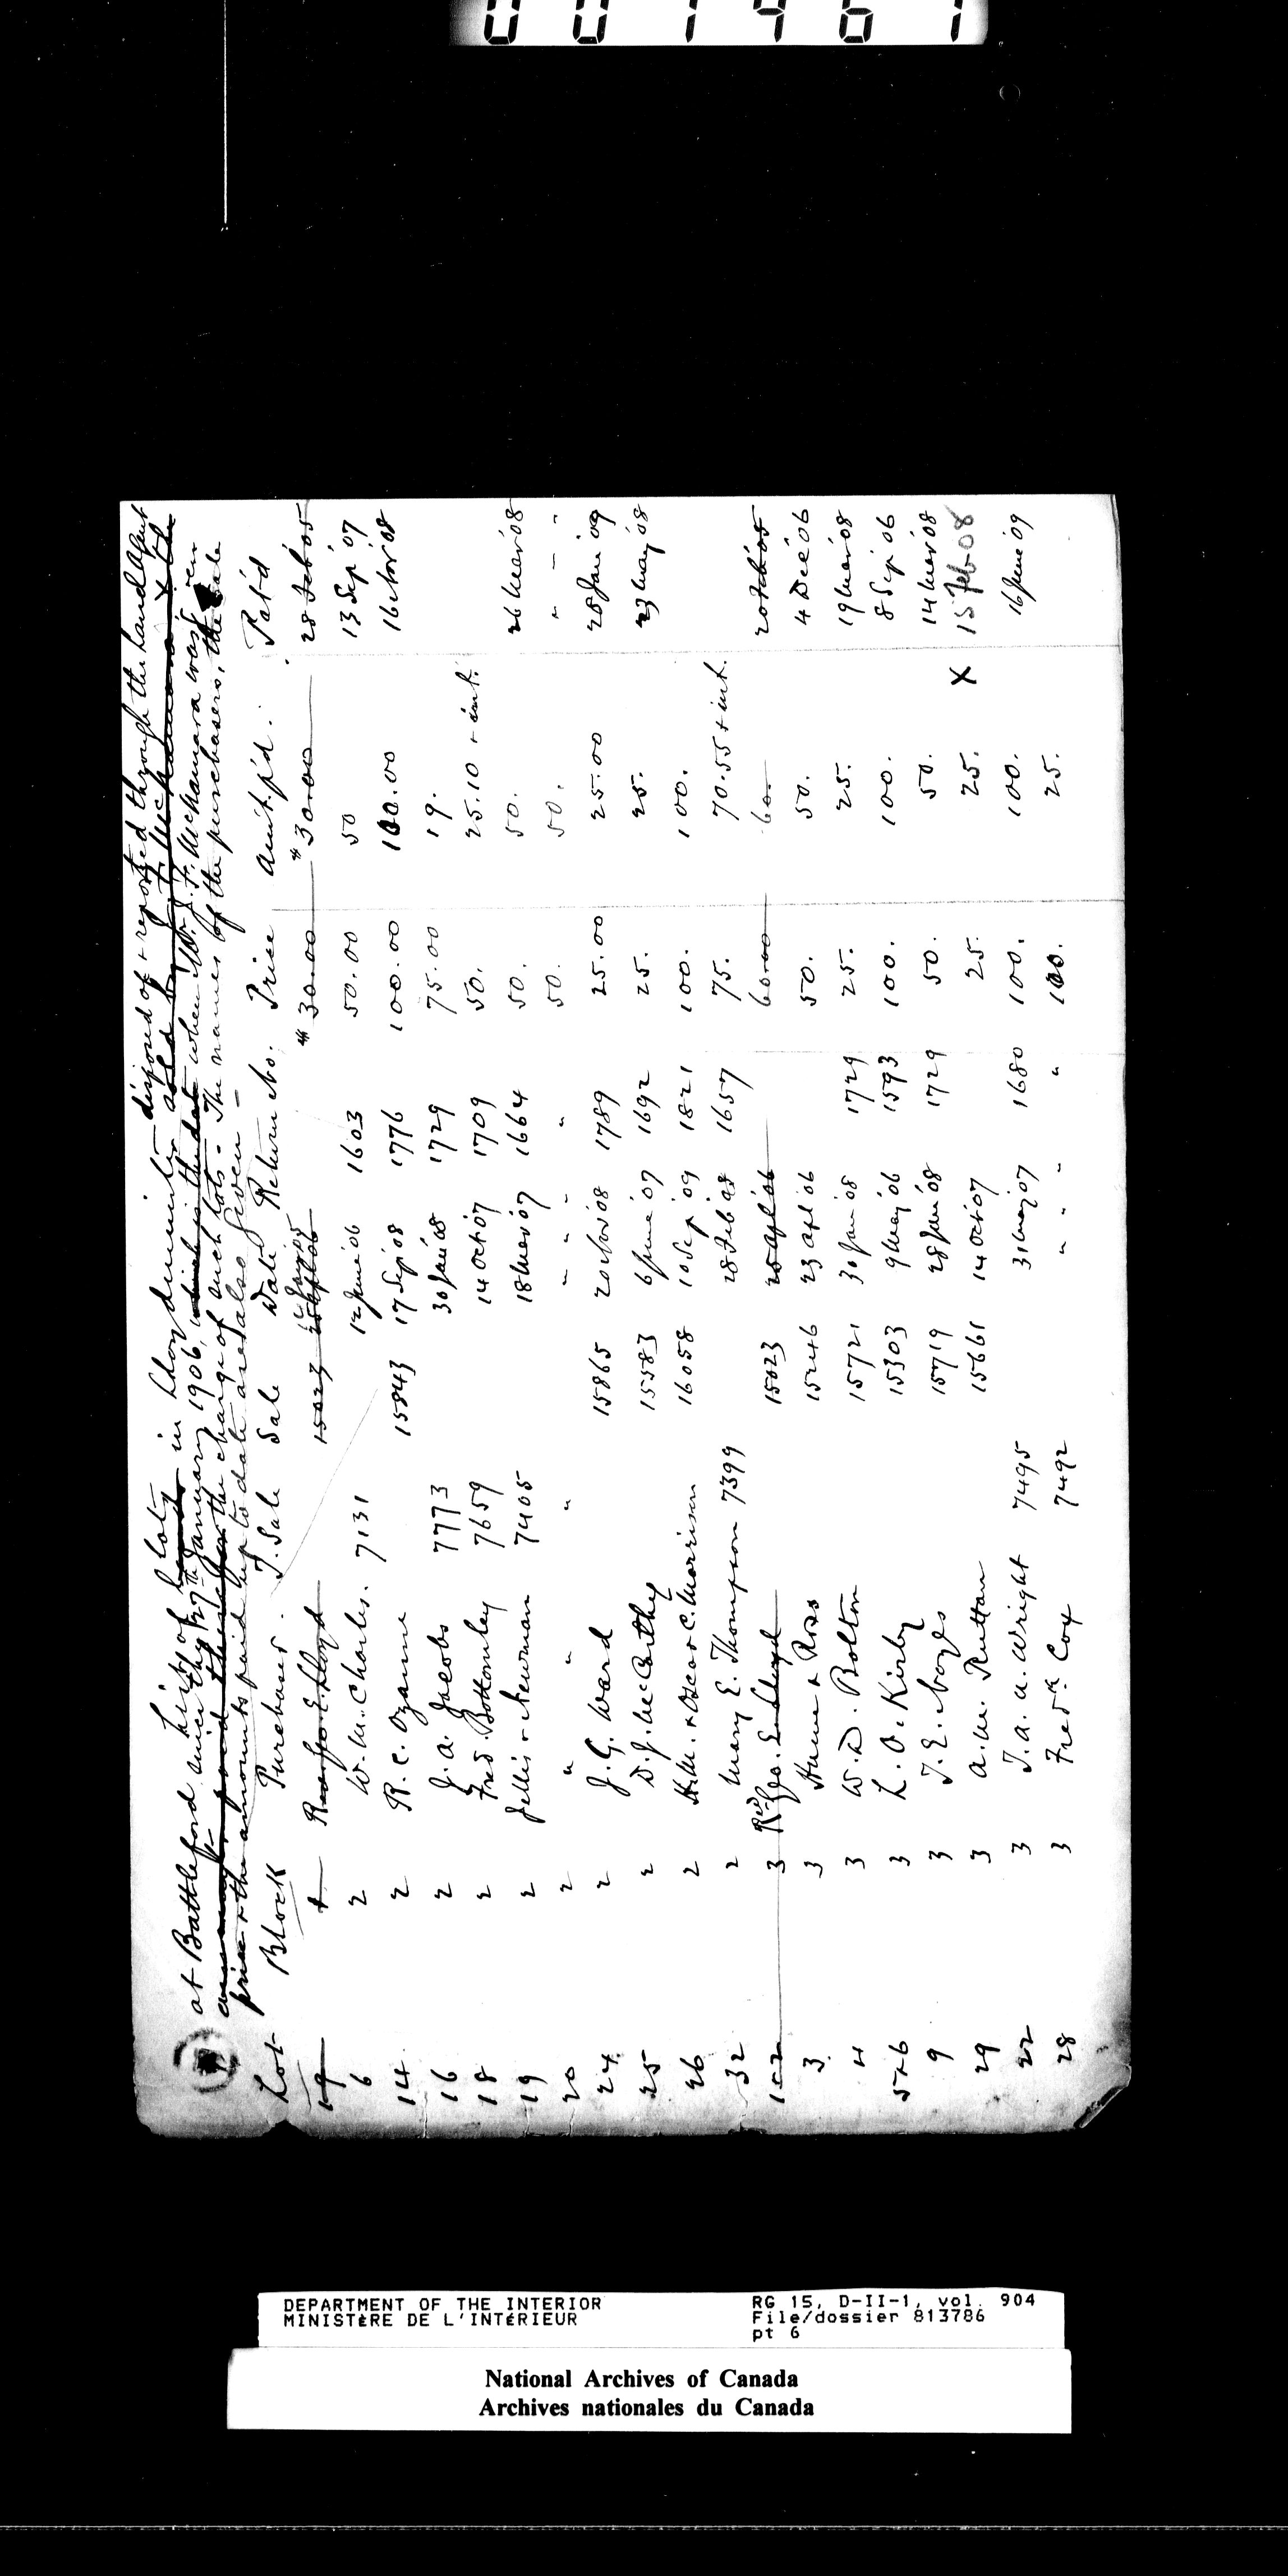 001461
List of lands lots in Lloydminster disposed of & reported through the Land Agent
at Battleford since the 27th January 1906, which is the date when Mr. J. F. McNamara was
given the charge of such lots - The names of the purchasers, the sale
price & the amounts paid up to date are also given -
Lot Block Purchaser. T. Sale Sale Date Return No. Price Am't. p'd. Pat'd
19 1 Rev Geo E Lloyd 15023 25 Apl 06 12 Jan 05 $30.00 $30.00 28 Feb '05
6 2 W. M. Charles. 7131 12 June '06 1603 50.00 50 13 Sep '07
14 2 R. C. Ozanne 15843 17 Sep '08 1776 100.00 100.00 16 Nov '08
16 2 J. A. Jacobs 7773 30 Jan '08 1729 75.00 19.
18 2 Fred. Bottomley 7659 14 Oct '07 1709 50. 25.10 + int.
19 2 Jellis & Newman 7405 18 Mar '07 1664 50. 50. 26 Mar '08
20 2 " " " " " " " 50. 50. " - - -
24 2 J. G. Ward 15865 20 Nov '08 1789 25.00 25.00 28 Jan '09
25 2 D. J. McCarthy 15583 6 June '07 1692 25. 25. 23 May '08
26 2 H. M. & Oscar C. Morrison 16058 10 Sep '09 1821 100. 100.
32 2 Mary E. Thompson 7399 28 Feb '07 1657 75. 70.55 + int.
1 & 2 3 Revd Geo. E. Lloyd 15023 25 Apl '06 60.00 60. 20 Feb '05
3 3 Hume & Ross 15246 23 Apl '06 50. 50. 4 Dec '06
4 3 W. D. Bolton 15721 30 Jan '08 1729 25. 25. 19 Mar '08
5 & 6 3 L. O. Kirby 15303 9 May '06 1593 100. 100. 8 Sep '06
9 3 T. E. Boyle 15719 28 Jan '08 1729 50. 50. 14 Mar '08
29 3 A. M. Rutton 15661 14 Oct '07 25. 25. X 15 Feb 08
22 3 T. A. A. Wright 7495 31 May '07 1680 100. 100. 16 June '09
28 3 Fredk Cox 7492 " " " " 100. 25.
DEPARTMENT OF THE INTERIOR
MINISTÈRE DE L'INTÉRIEUR
RG 15, D-II-1, vol. 904
File/dossier 813786
pt 6
National Archives of Canada
Archives nationales du Canada